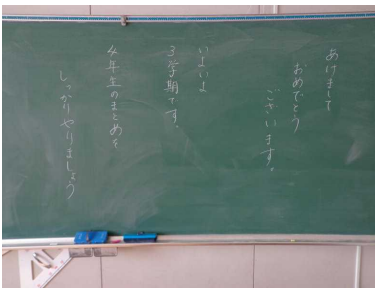 あけまして
おめでとう
ございます。
いよいよ
3学期です。
4年生のまとめを
しっかりやりましょう